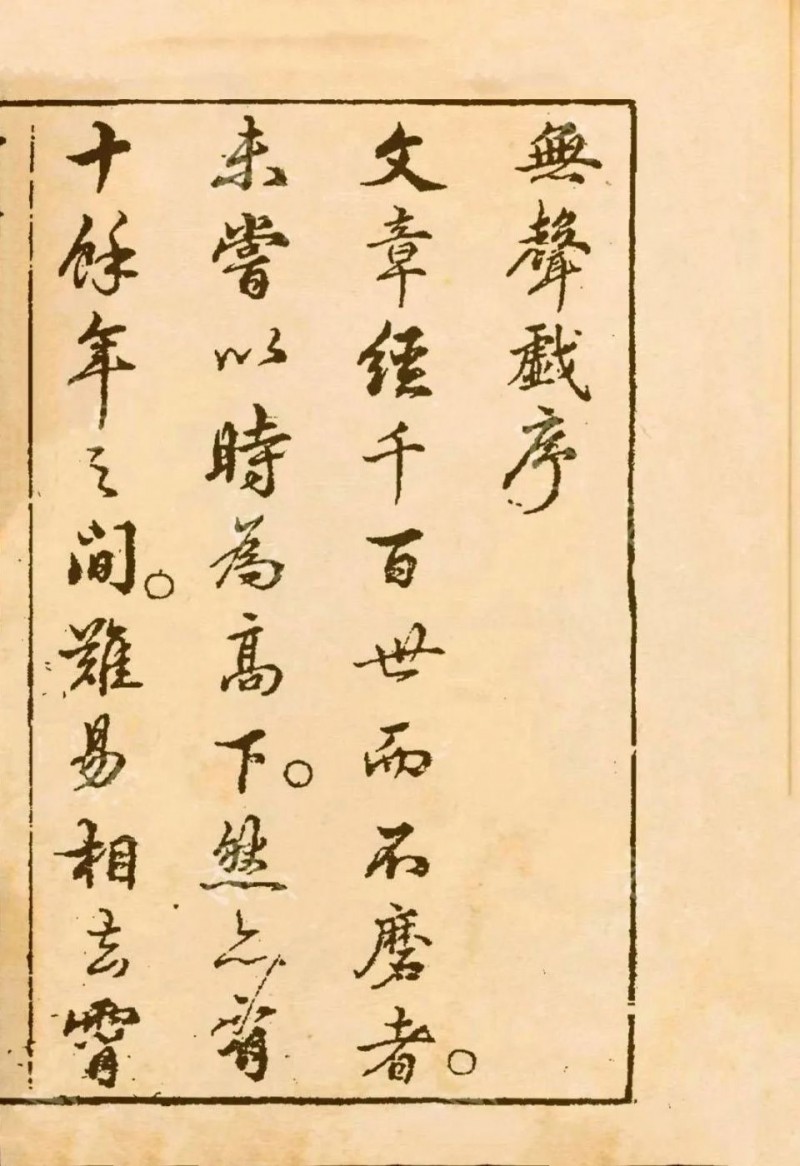 無聲戲序
文章經千百世而不磨者。
未嘗以時為高下。然亦有
十餘年之間。難易相去霄